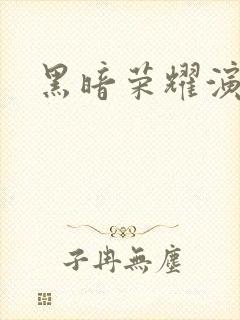 黑暗荣耀演
子冉無塵